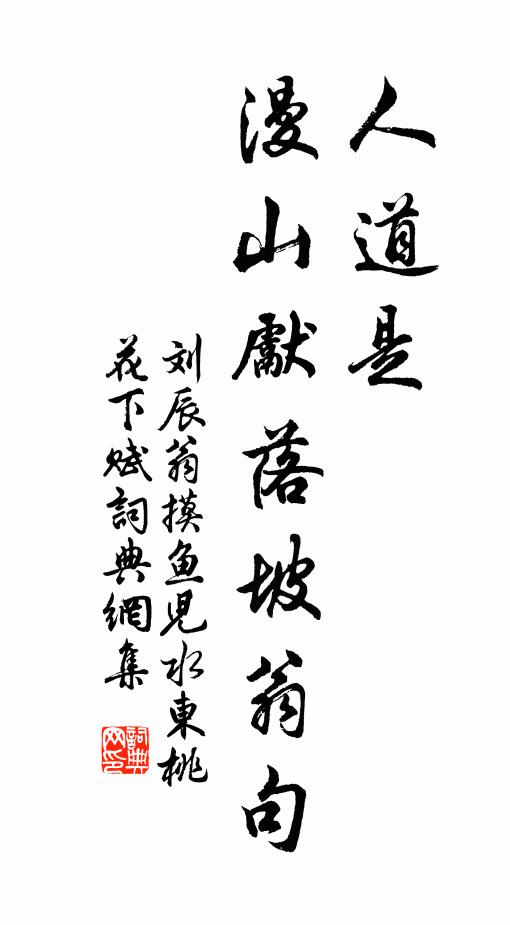 人道是
漫山獻落坡翁句
刘辰翁摸鱼児水東桃
花下赋詞典網集
詞典网印